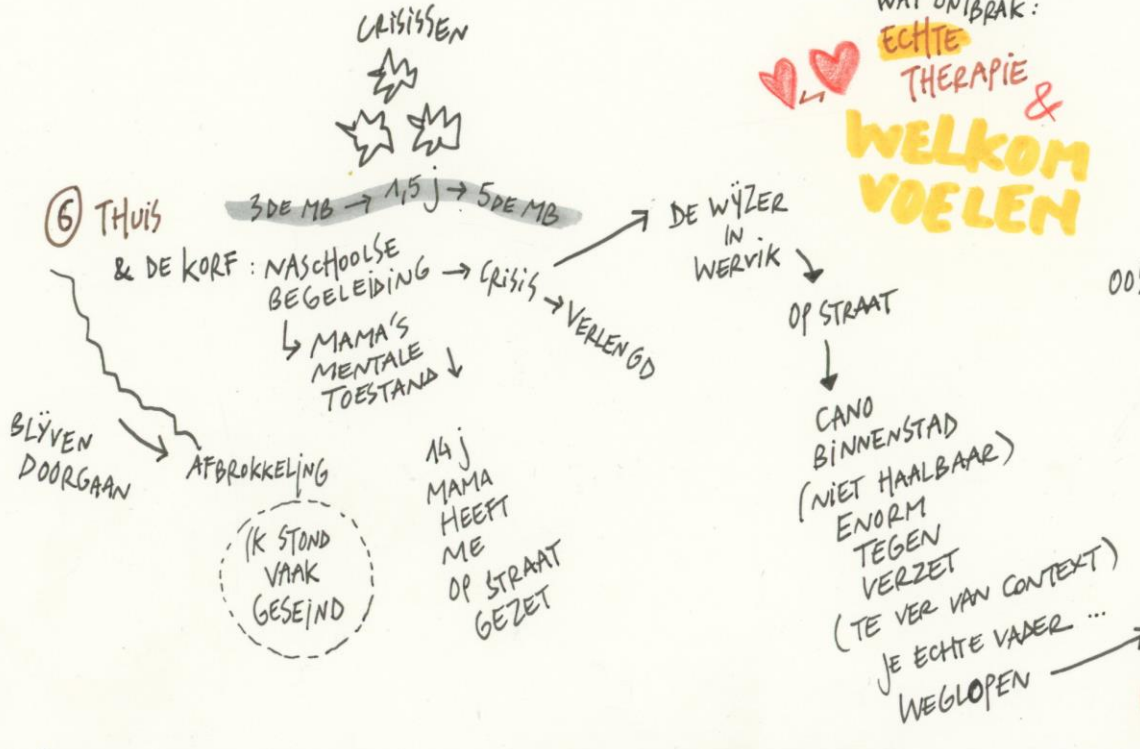 CRISISSEN
WAT ONTBRAK:
ECHTE
THERAPIE
&
WELKOM
VOELEN
3DE MB → 1,5 j → 5DE MB
⑥ THUIS
& DE KORF: NASCHOOLSE
BEGELEIDING → CRISIS → VERLENGD
↳ MAMA'S
MENTALE
TOESTAND ↓
DE WIJZER
IN
WERVIK
OP STRAAT
CANO
BINNENSTAD
(NIET HAALBAAR)
ENORM
TEGEN
VERZET
(TE VER VAN CONTEXT)
JE ECHTE VADER ...
WEGLOPEN
BLIJVEN
DOORGAAN
AFBROKKELING
IK STOND
VAAK
GESEIND
14 j
MAMA
HEEFT
ME
OP STRAAT
GEZET